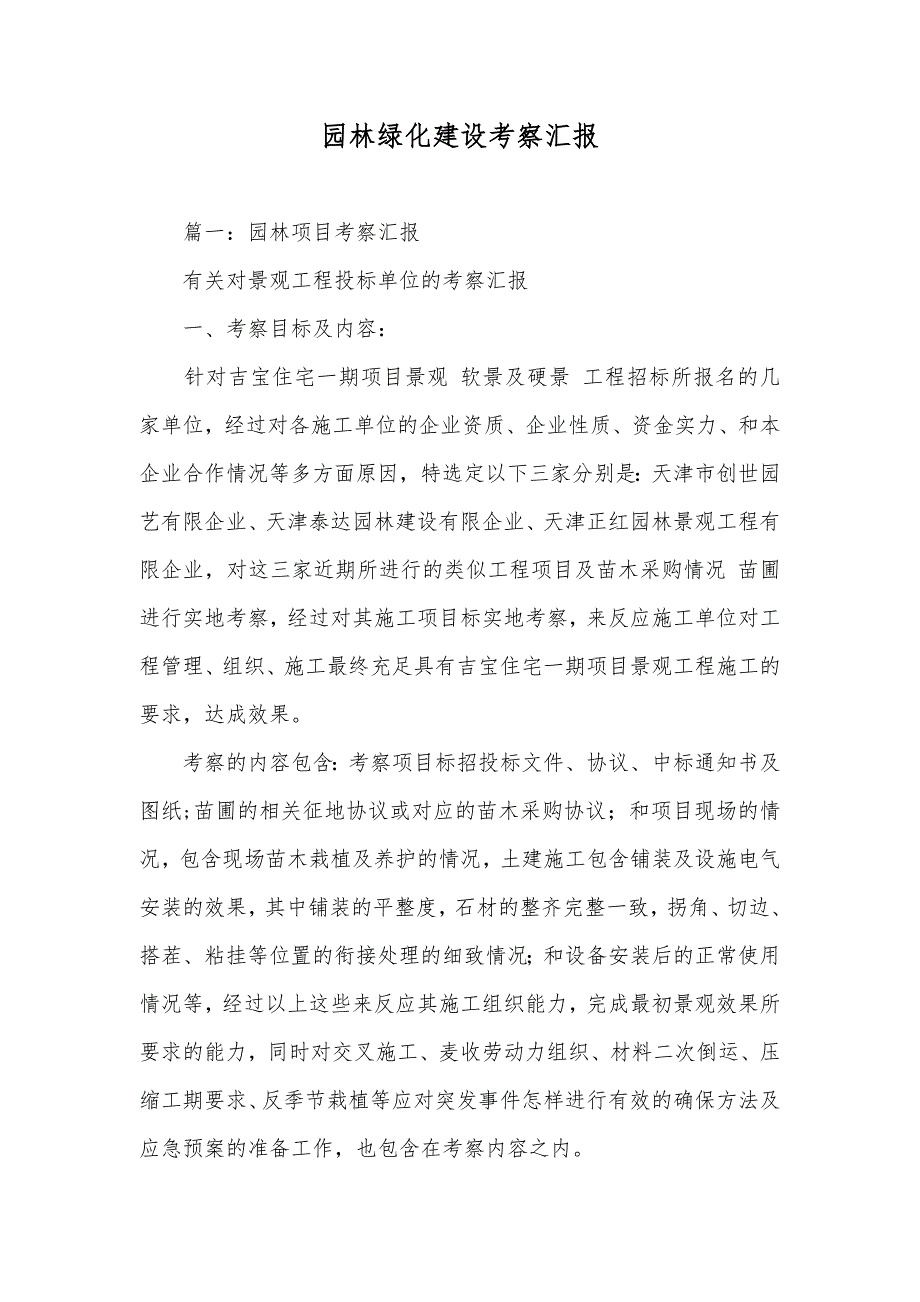 园林绿化建设考察汇报
篇一：园林项目考察汇报
有关对景观工程投标单位的考察汇报
一、考察目标及内容：
针对吉宝住宅一期项目景观 软景及硬景 工程招标所报名的几
家单位，经过对各施工单位的企业资质、企业性质、资金实力、和本
企业合作情况等多方面原因，特选定以下三家分别是：天津市创世园
艺有限企业、天津泰达园林建设有限企业、天津正红园林景观工程有
限企业，对这三家近期所进行的类似工程项目及苗木采购情况 苗圃
进行实地考察，经过对其施工项目标实地考察，来反应施工单位对工
程管理、组织、施工最终充足具有吉宝住宅一期项目景观工程施工的
要求，达成效果。
考察的内容包含：考察项目标招投标文件、协议、中标通知书及
图纸;苗圃的相关征地协议或对应的苗木采购协议；和项目现场的情
况，包含现场苗木栽植及养护的情况，土建施工包含铺装及设施电气
安装的效果，其中铺装的平整度，石材的整齐完整一致，拐角、切边、
搭茬、粘挂等位置的衔接处理的细致情况；和设备安装后的正常使用
情况等，经过以上这些来反应其施工组织能力，完成最初景观效果所
要求的能力，同时对交叉施工、麦收劳动力组织、材料二次倒运、压
缩工期要求、反季节栽植等应对突发事件怎样进行有效的确保方法及
应急预案的准备工作，也包含在考察内容之内。